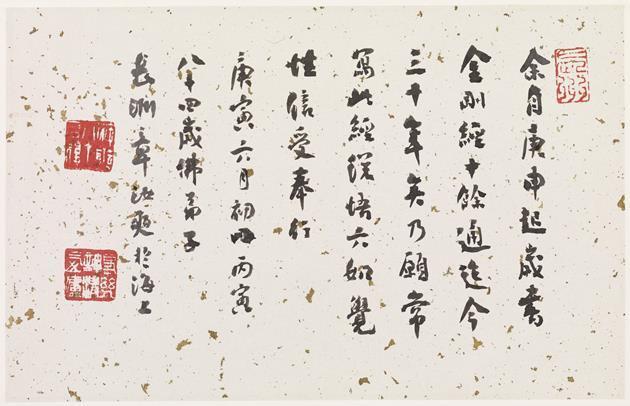 余自庚申起歲書
金剛經十餘通迄今
三十年矣乃願常
寫此經從悟六如覺
性信受奉行
庚寅六月初四丙寅
八十四歲佛弟子
長洲章汝奭於海上